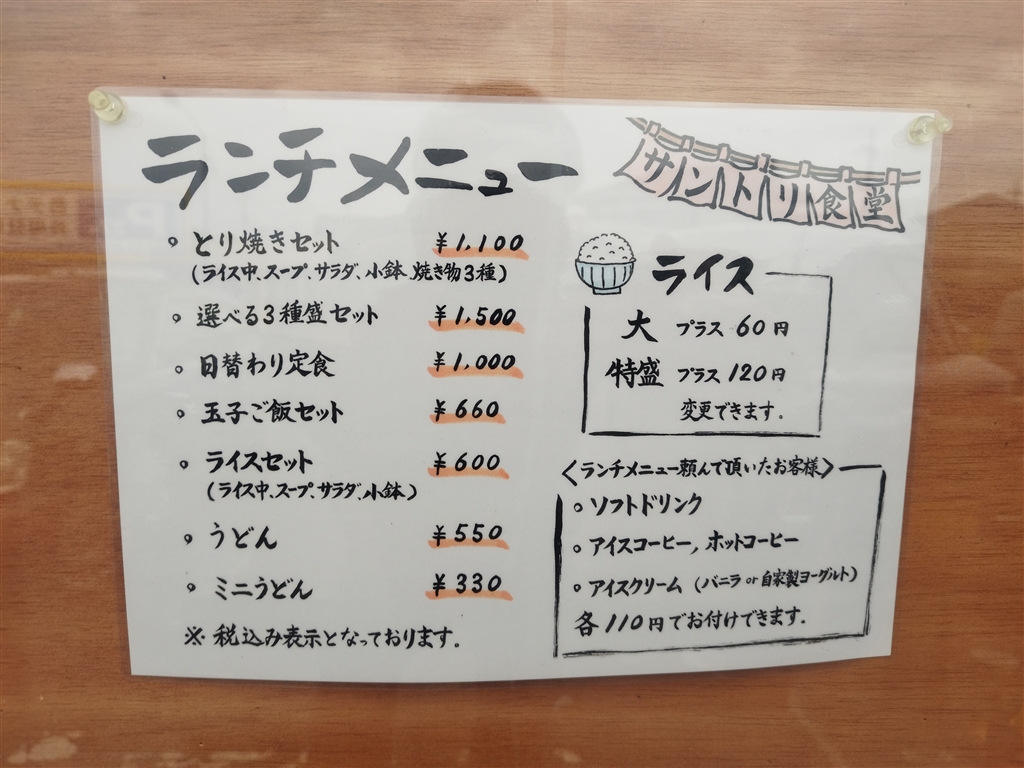 ランチメニュー
サントリ食堂
。とり焼きセット ¥1,100
(ライス中、スープ、サラダ、小鉢、焼き物3種)
。選べる3種盛セット ¥1,500
。日替わり定食 ¥1,000
。玉子ご飯セット ¥660
。ライスセット ¥600
(ライス中、スープ、サラダ、小鉢)
。うどん ¥550
。ミニうどん ¥330
※税込み表示となっております。
ライス
大 プラス 60円
特盛 プラス 120円
変更できます。
〈ランチメニュー頼んで頂いたお客様〉
。ソフトドリンク
。アイスコーヒー, ホットコーヒー
。アイスクリーム (バニラ or 自家製ヨーグルト)
各110円でお付けできます。